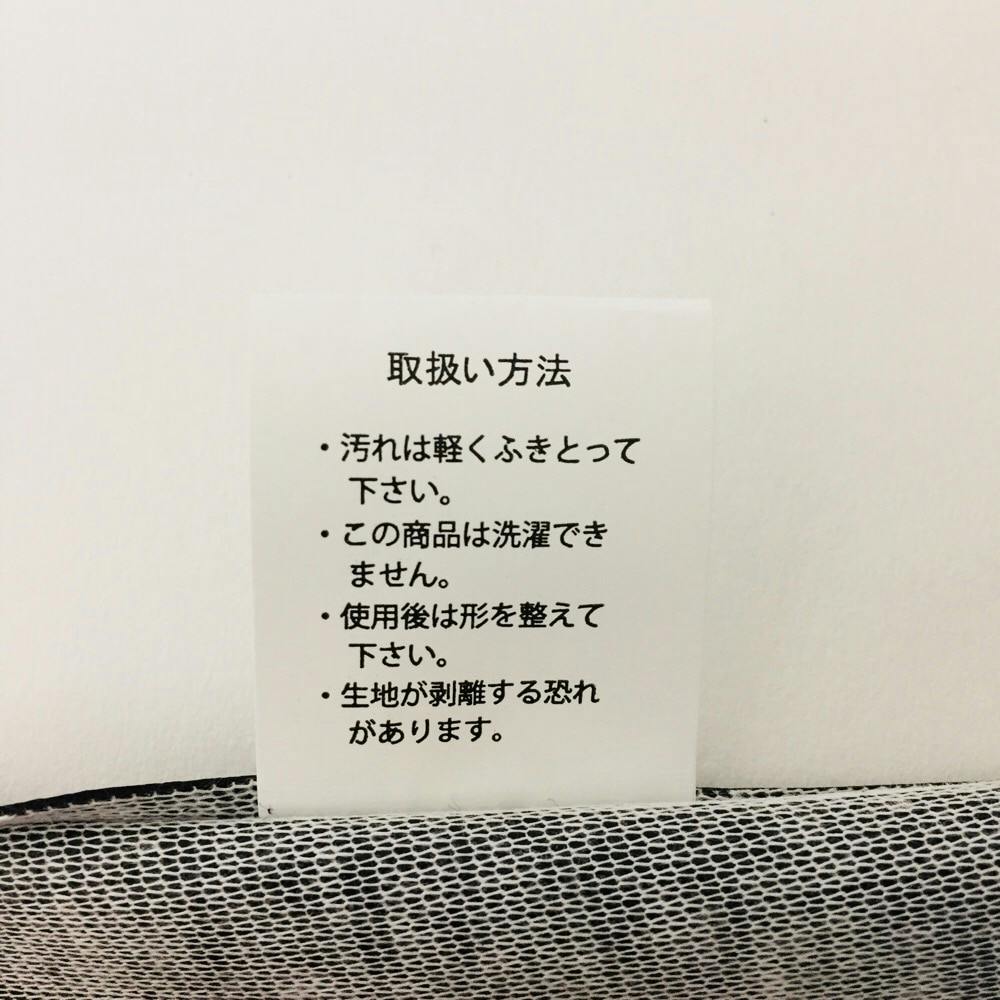 取扱い方法
・汚れは軽くふきとって
下さい。
・この商品は洗濯でき
ません。
・使用後は形を整えて
下さい。
・生地が剥離する恐れ
があります。